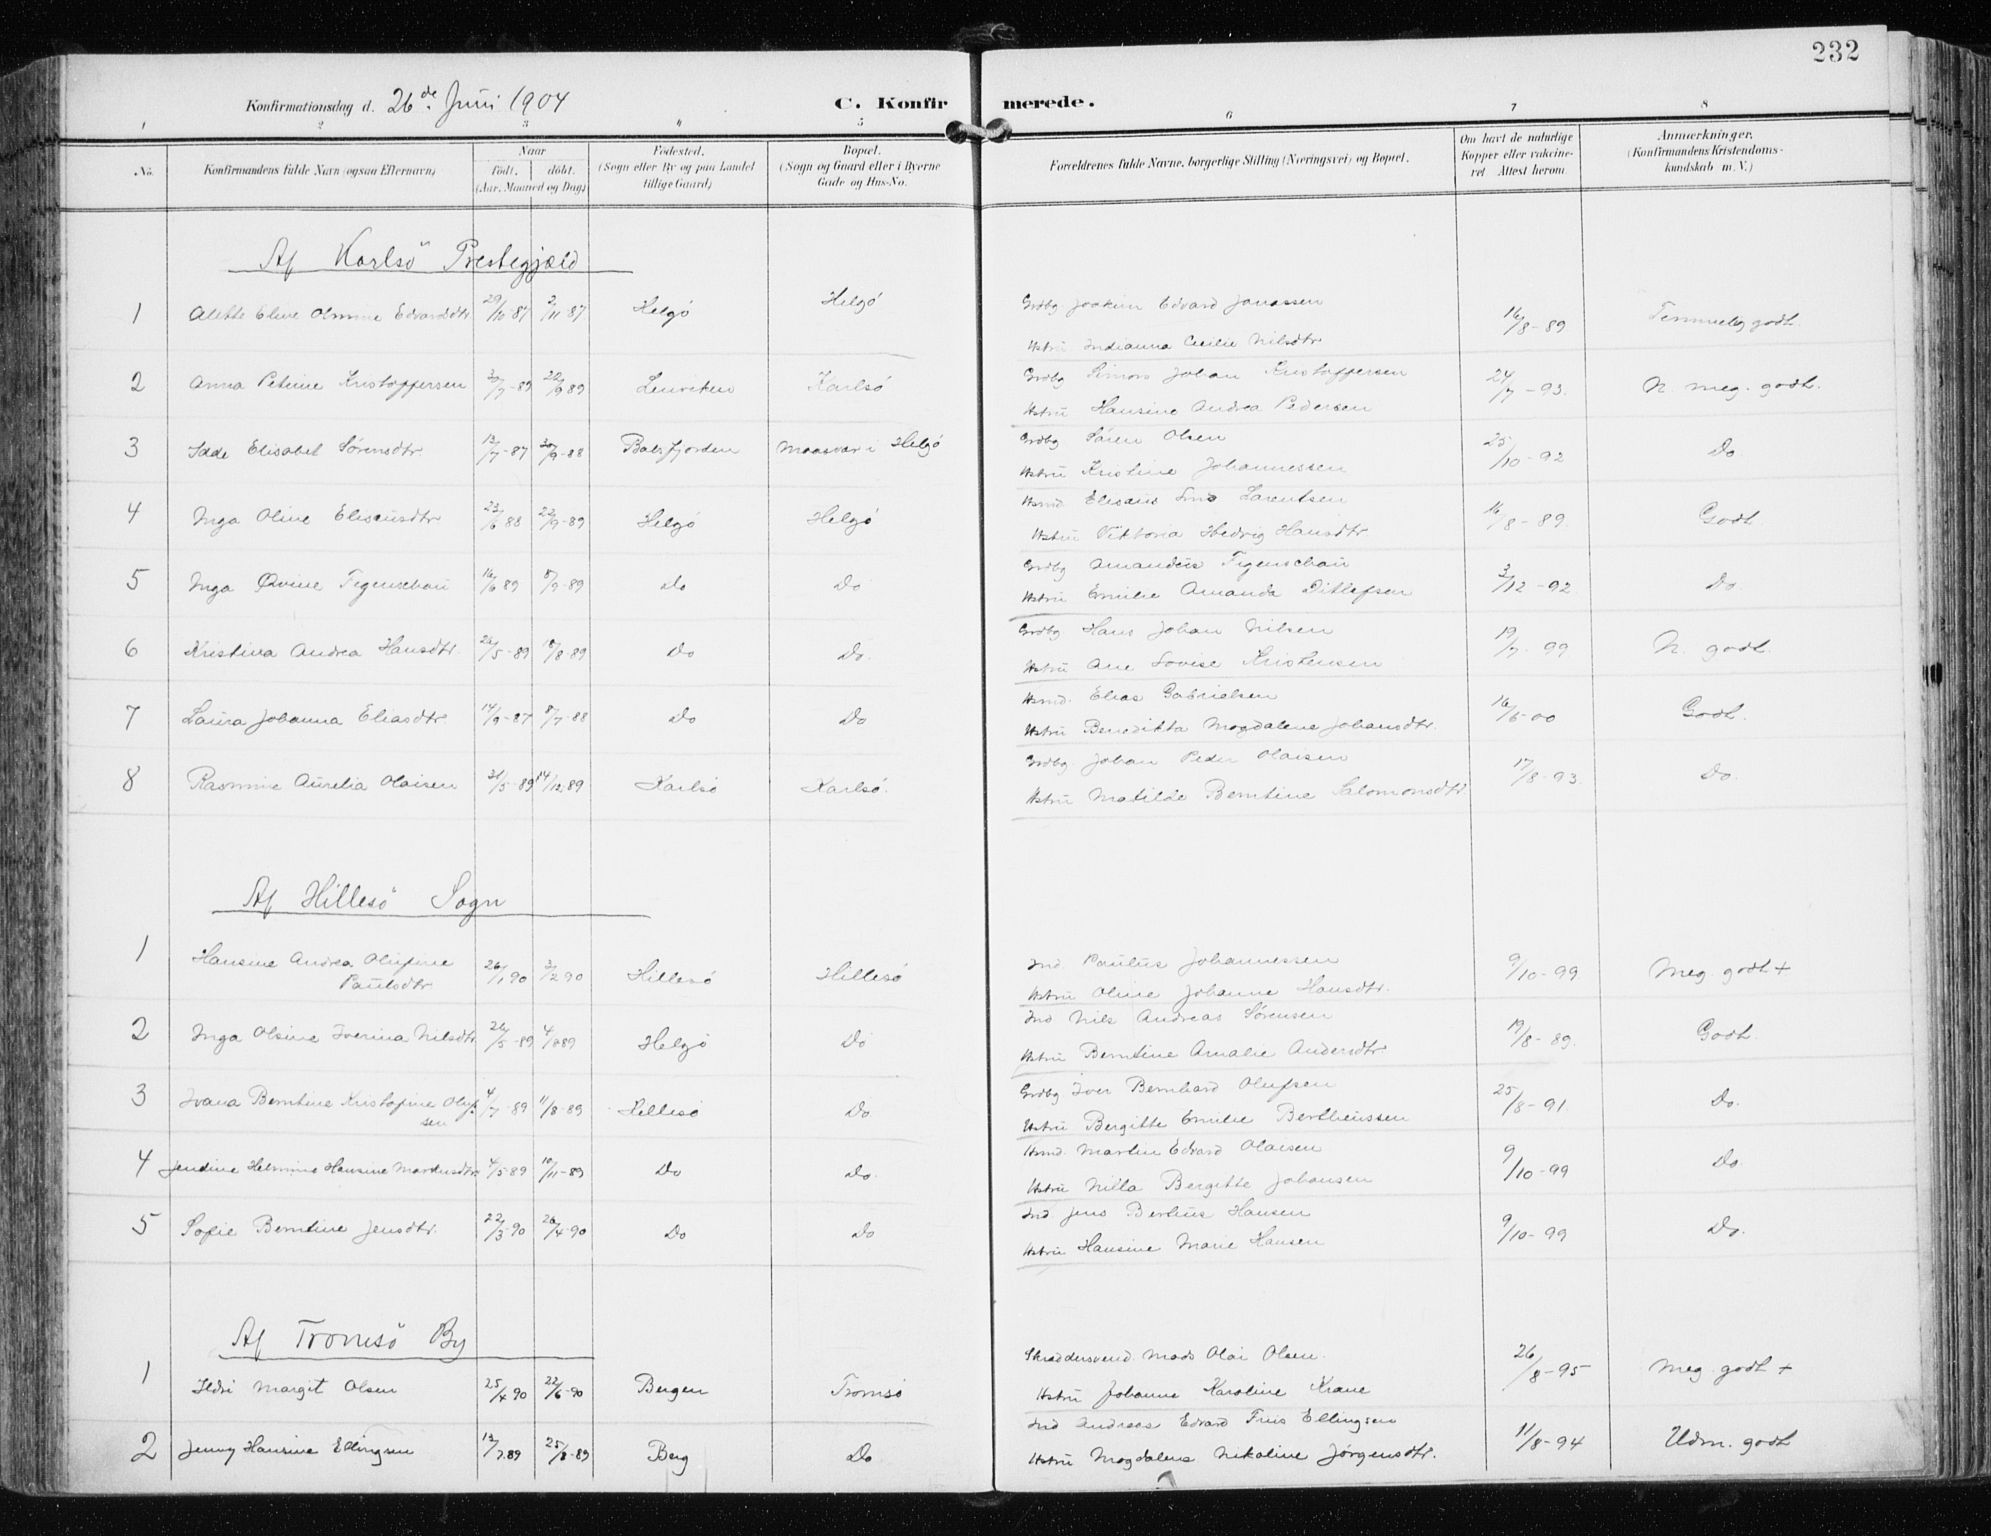 232
Konfirmationsdag d. 26de Juni 1904
C. Konfirmerede.
1 2 3 4 5 6 7 8
No.
Konfirmandens fulde Navn (ogsaa Efternavn)
Naar
födt. döbt.
(Aar, Maaned og Dag)
Födested.
(Sogn eller By og paa Landet
tillige Gaard)
Bopæl.
(Sogn og Gaard eller i Byerne
Gade og Hus-No.
Forældrenes fulde Navne, borgerlige Stilling (Næringsvei) og Bopæl.
Om havt de naturlige
Kopper eller vakcine-
ret Attest herom
Anmærkninger.
(Konfirmandens Kristendoms-
kundskab m. V.)
Af Karlsö Prestegjæld
1 Alette Eline Olmine Edvardsdtr 29/10-87 2/11-87 Helgö Helgö Grdbg Joakim Edvard Jonassen 16/8-89 Temmelig godt.
Hstru Indianna Cecilie Nilsdtr
2 Anna Petrine Kristoffersen 30/7-89 29/9 89 Lenviken Karlsö Grdbg Simon Johan Kristoffersen 24/7-93. N. meg. godt.
Hstru Hansine Andrea Pedersen
3 Elisabet Sørensdtr. 13/7-87 30/9-88 Balsfjorden Maasvær i Helgö Grdbg Sören Olsen 25/10-92 Do
Hstru Kristine Johannessen
4 Inga Oline Elisæusdtr 23/6 88 22/9-89 Helgö Helgö Hsmd. Elisæus Larentsen 16/8-89. Godt
Hstru Viktoria Hedvig Hansdtr
5 Inga Øvine Figenschau 16/6 89 8/9-89 Do Do Grdbg Amandus Figenschau 3/12-92 Do
Hstru Emilie Amanda Ditlefsen
6 Kristina Andrea Hansdtr. 23/5-89 18/8-89 Do Do. Grdbg Hans Johan Nilsen 19/7-99 N. godt.
Hstru Ane Lovise Kristensen
7 Laura Johanna Eliasdtr. 14/9-87 8/7-88 Do Do Hsmd. Elias Gabrielsen 16/5-00 Godt.
Hstru Benedikta Magdalene Johansdtr.
8 Rasmine Aurelia Olaisen 31/5-89 14/12 89 Karlsö Karlsö. Grdbg Johan Peder Olaisen 17/8-93. Do.
Hstru Matilde Berntine Salomonsdtr
Af Hillesö Sogn
1 Hansine Andrea Olufine 26/1 90 3/2 90 Hillesö Hillesö Ind. Paulus Johannessen 9/10-99 Meg. godt +
Paulsdtr Hstru Oline Johanne Hansdtr.
2 Inga Olsine Iverina Nilsdtr. 26/5-89 4/8 89 Helgö Do Ind Nils Andreas Sørensen 19/8-89. Godt.
Hstru Berntine Amalie Andersdtr
3 Ivara Berntine Kristofine Oluf- 4/7-89 11/8-89 Hillesö Do Grdbg Iver Bernhard Olufsen 25/8-91. Do.
sen Hstru Bergitte Emilie Bertheussen
4 Jendine Helmine Hansine Martinsdtr 4/5 89 10/11-89 Do Do. Hsmd. Martin Edvard Olaisen 9/10-99 Do
Hstru Nilla Bergitte Johansen
5 Sofie Berntine Jensdtr. 22/3-90 26/4-90 Do Do Ind Jens Bertius Hansen 9/10-99 Do.
Hstru Hansine Marie Hansen
Af Tromsö By
1 Margit Olsen 25/4 90 22/6-90 Bergen Tromsö Skræddersvend. Mads Olai Olsen. 26/8-95 Meg. godt +
Hstru Johanne Karoline Krane
2 Jenny Hansine Ellingsen 13/7 89 25/8-89 Berg Do Ind Andreas Edvard Friis Ellingsen 11/8-94 Udm. godt
Hstru Magdalena Nikoline Jørgensdtr.